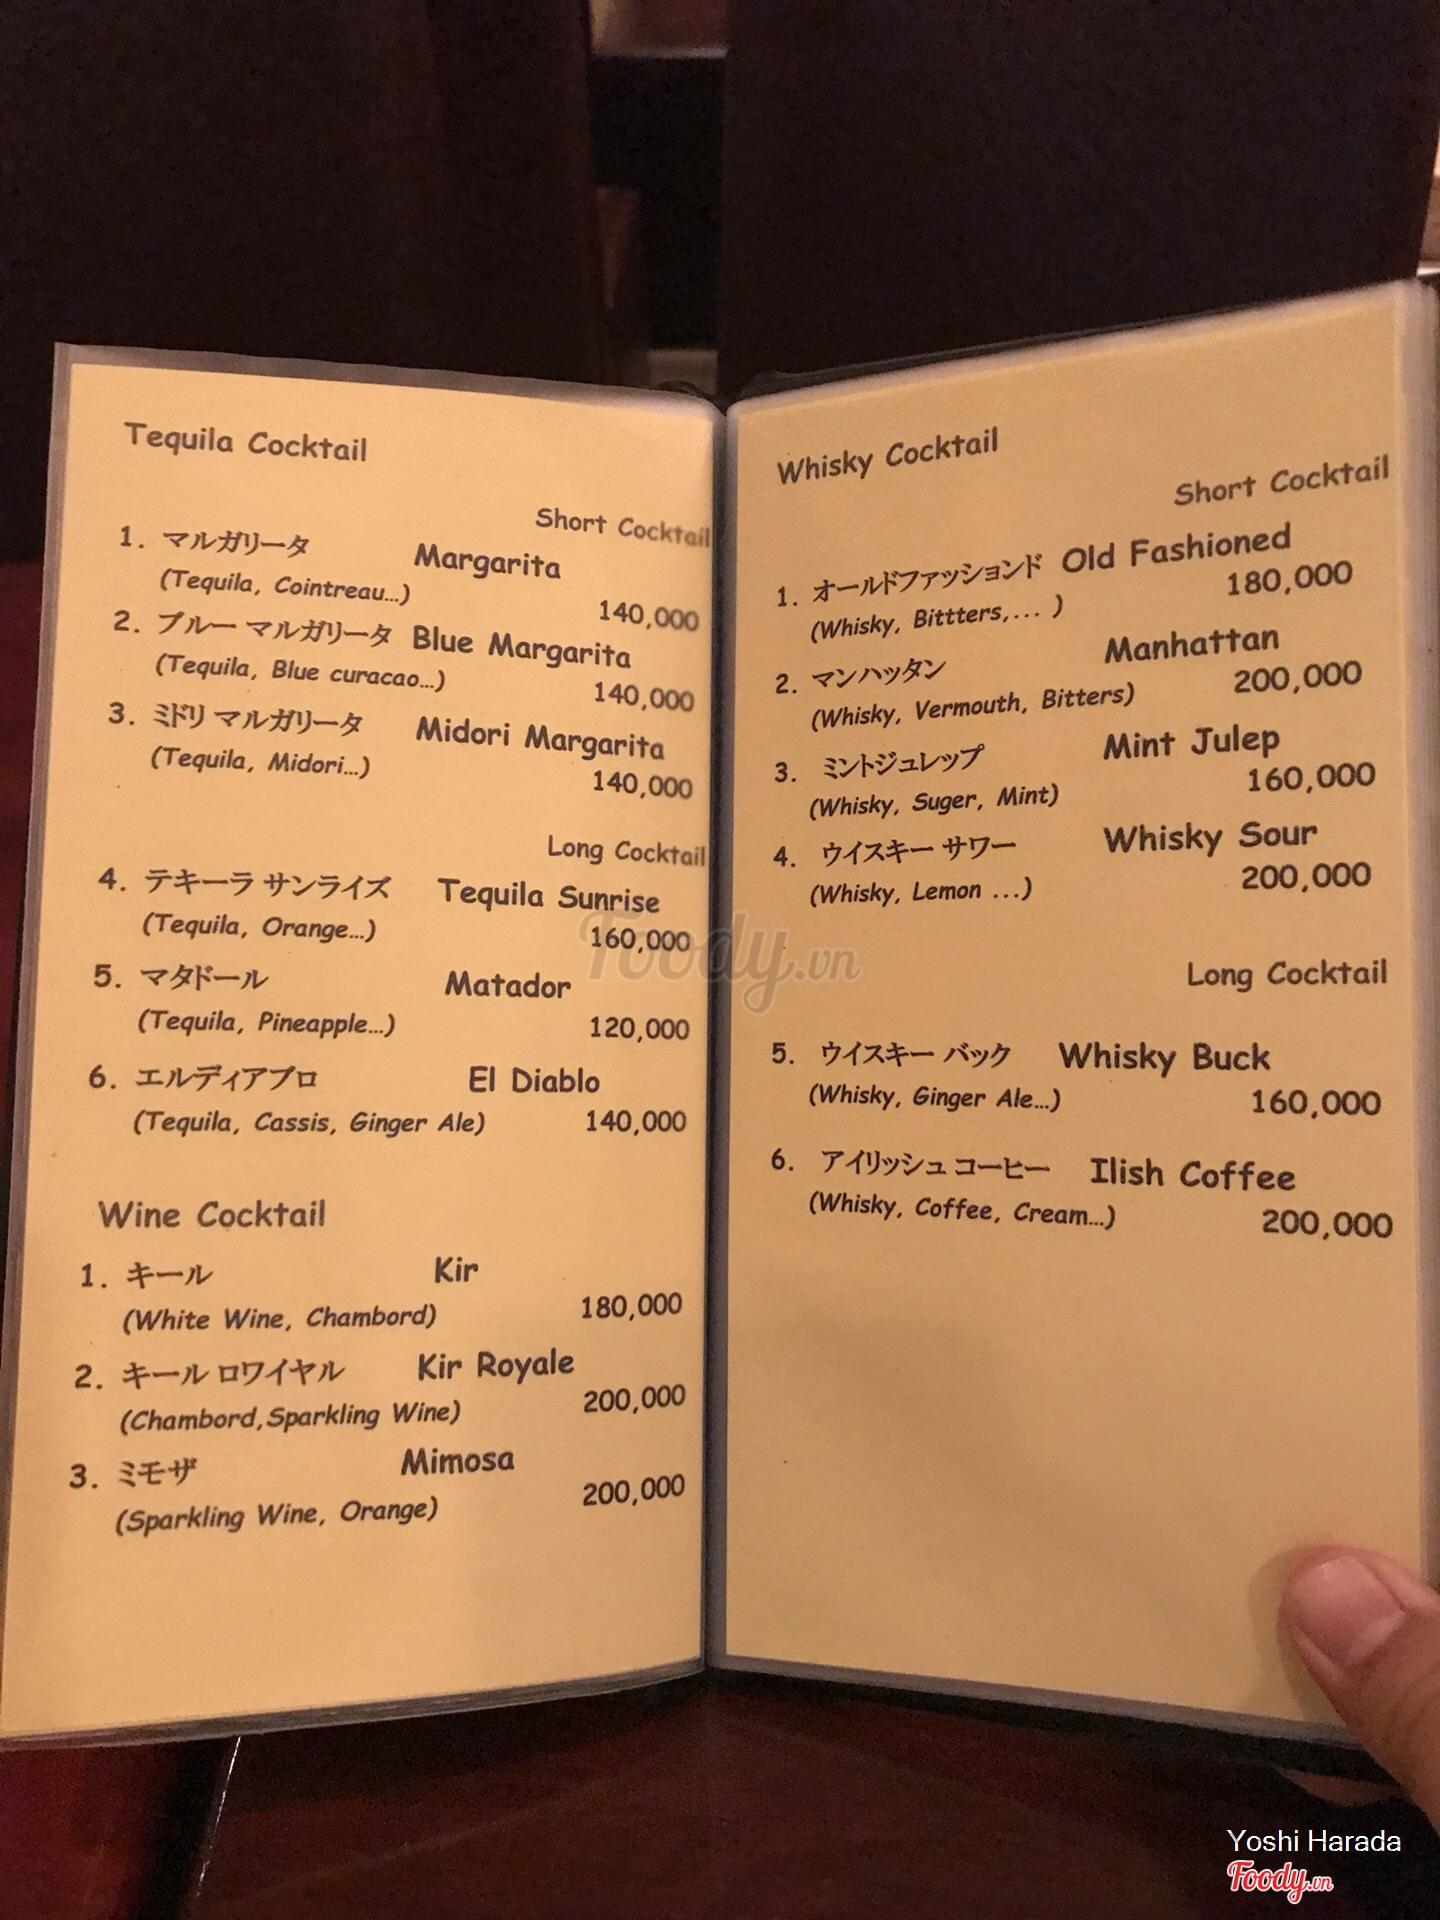 Tequila Cocktail
Short Cocktail
1. マルガリータ Margarita
(Tequila, Cointreau...)
140,000
2. ブルー マルガリータ Blue Margarita
(Tequila, Blue curacao...)
140,000
3. ミドリ マルガリータ Midori Margarita
(Tequila, Midori...)
140,000
Long Cocktail
4. テキーラ サンライズ Tequila Sunrise
(Tequila, Orange...) 160,000
5. マタドール Matador
(Tequila, Pineapple...) 120,000
6. エルディアブロ El Diablo
(Tequila, Cassis, Ginger Ale) 140,000
Wine Cocktail
1. キール Kir
(White Wine, Chambord) 180,000
2. キール ロワイヤル Kir Royale
(Chambord,Sparkling Wine) 200,000
3. ミモザ Mimosa
(Sparkling Wine, Orange) 200,000
Whisky Cocktail
Short Cocktail
1. オールドファッションド Old Fashioned
(Whisky, Bittters,... ) 180,000
2. マンハッタン Manhattan
(Whisky, Vermouth, Bitters) 200,000
3. ミントジュレップ Mint Julep
(Whisky, Suger, Mint) 160,000
4. ウイスキー サワー Whisky Sour
(Whisky, Lemon ...) 200,000
Long Cocktail
5. ウイスキー バック Whisky Buck
(Whisky, Ginger Ale...) 160,000
6. アイリッシュ コーヒー Ilish Coffee
(Whisky, Coffee, Cream...) 200,000
Foody.vn
Yoshi Harada
Foody.vn